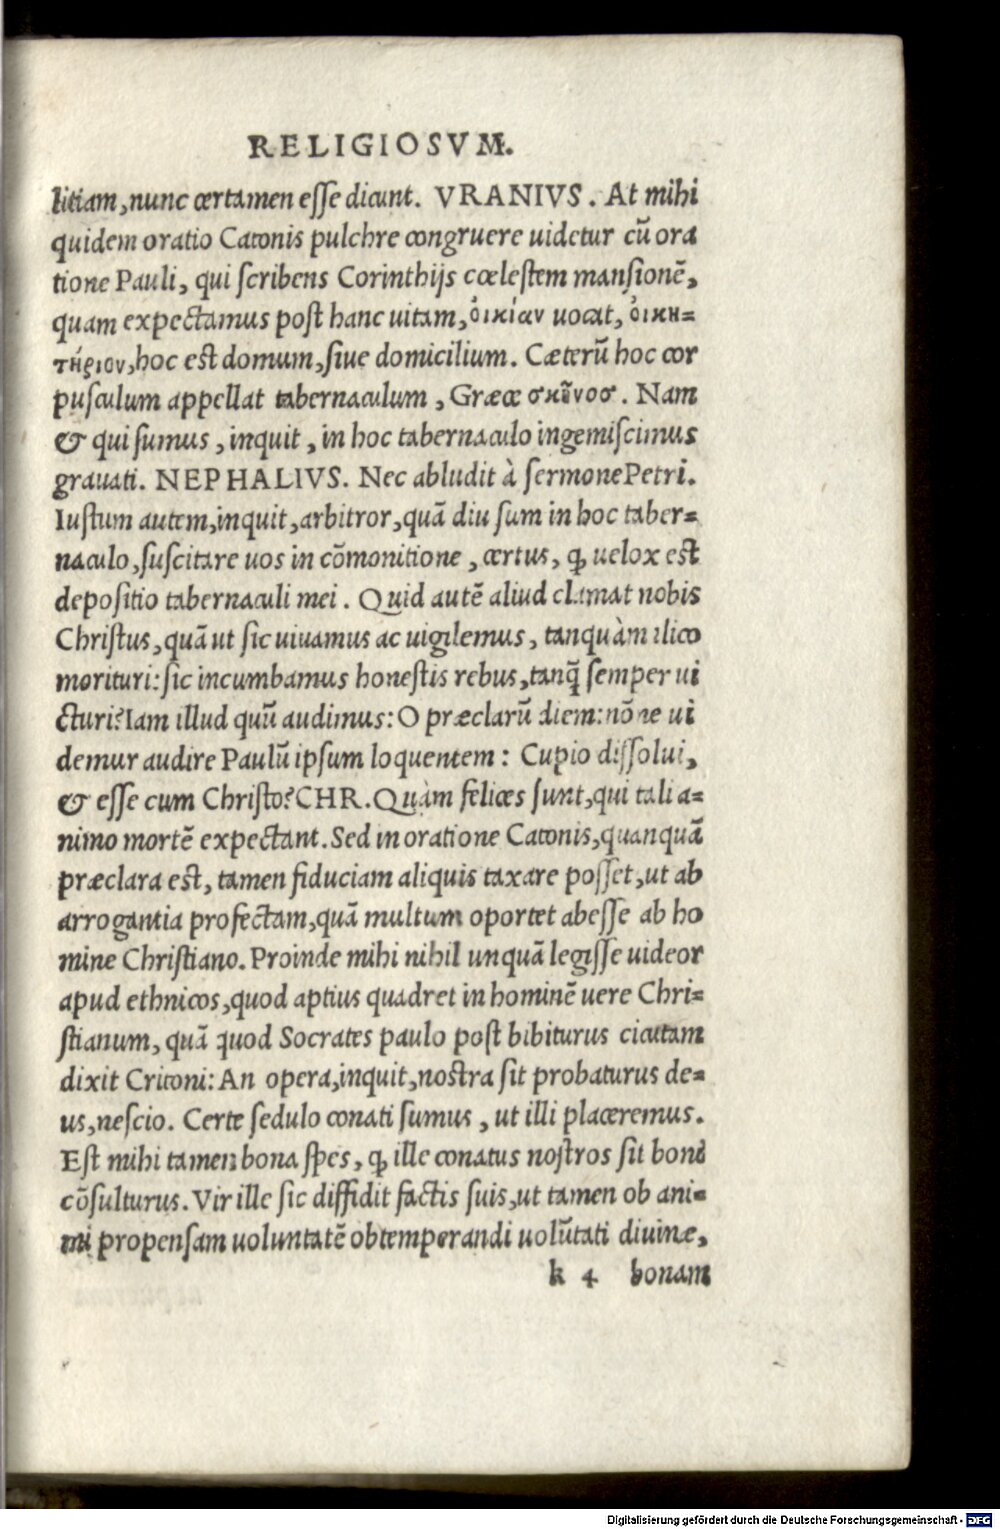 RELIGIOSVM.
litiam, nunc certamen esse dicunt. VRANIVS. At mihi
quidem oratio Catonis pulchre congruere uidetur cū ora
tione Pauli, qui scribens Corinthijs cœlestem mansionē,
quam expectamus post hanc uitam, ὀικίαν uocat, ὀικη=
τήριον, hoc est domum, siue domicilium. Cæterū hoc cor
pusculum appellat tabernaculum, Græce σκῆνοσ. Nam
& qui sumus, inquit, in hoc tabernaculo ingemiscimus
grauati. NEPHALIVS. Nec abludit à sermone Petri.
Iustum autem, inquit, arbitror, quā diu sum in hoc taber=
naculo, suscitare uos in cōmonitione, certus, ꝙ uelox est
depositio tabernaculi mei. Quid autē aliud clamat nobis
Christus, quā ut sic uiuamus ac uigilemus, tanquàm ilico
morituri: sic incumbamus honestis rebus, tanq̄ semper ui
cturi? Iam illud quū audimus: O præclarū diem: nōne ui
demur audire Paulū ipsum loquentem: Cupio dissolui,
& esse cum Christo? CHR. Quàm felices sunt, qui tali a=
nimo mortē expectant. Sed in oratione Catonis, quanquā
præclara est, tamen fiduciam aliquis taxare posset, ut ab
arrogantia profectam, quā multum oportet abesse ab ho
mine Christiano. Proinde mihi nihil unquā legisse uideor
apud ethnicos, quod aptius quadret in hominē uere Chri=
stianum, quā quod Socrates paulo post bibiturus cicutam
dixit Critoni: An opera, inquit, nostra sit probaturus de=
us, nescio. Certe sedulo conati sumus, ut illi placeremus.
Est mihi tamen bona spes, ꝙ ille conatus nostros sit boni
cōsulturus. Vir ille sic diffidit factis suis, ut tamen ob ani=
mi propensam uoluntatē obtemperandi uolūtati diuinæ,
k 4 bonam
Digitalisierung gefördert durch die Deutsche Forschungsgemeinschaft - DFG